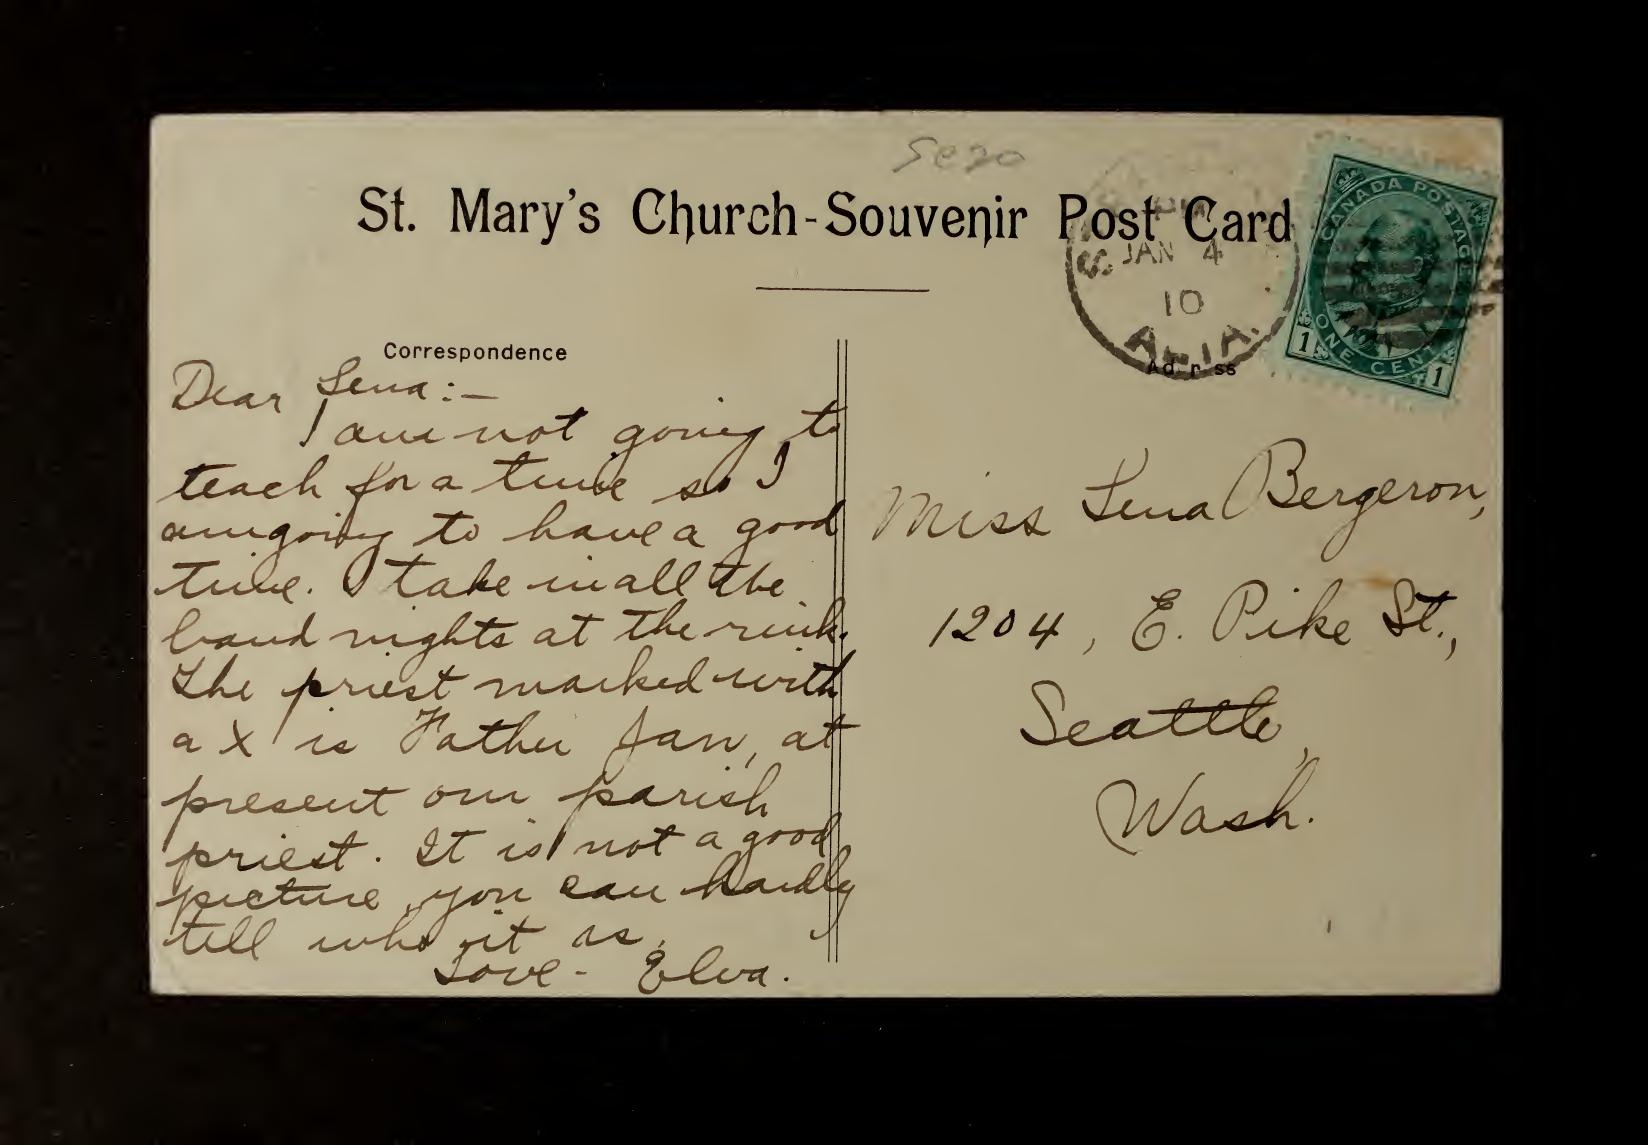 5e20
St. Mary's Church-Souvenir Post Card
PM
JAN 4
10
ALTA.
CANADA POSTAGE
ONE CENT
1 1
Correspondence
Address
Dear Lena:—
I am not going to
teach for a time so I
am going to have a good
time. I take in all the
band nights at the rink.
The priest marked with
a X is Father Jan, at
present our parish
priest. It is not a good
picture, you can hardly
tell who it is.
Love - Elva.
Miss Lena Bergeron,
1204, E. Pike St.,
Seattle,
Wash.